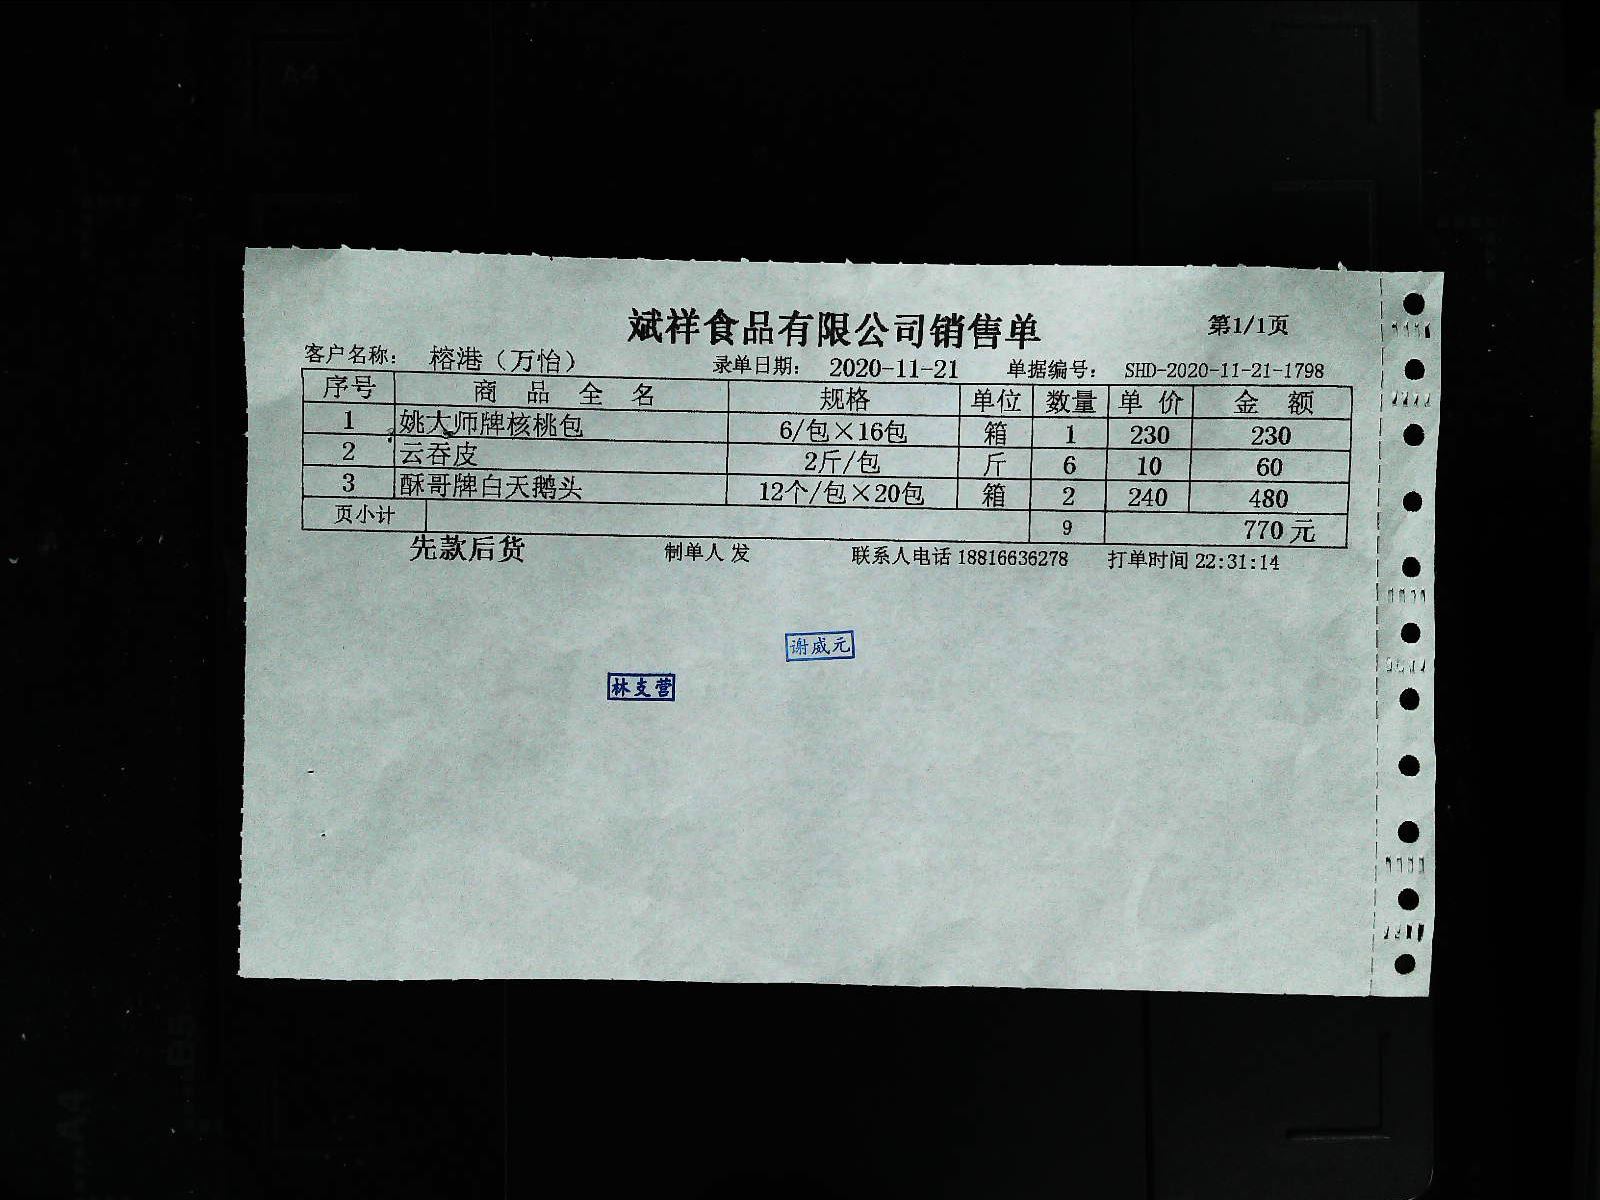 斌祥食品有限公司销售单 第1/1页
客户名称： 榕港（万怡） 录单日期： 2020-11-21 单据编号： SHD-2020-11-21-1798
序号 商品全名 规格 单位 数量 单价 金额
1 姚大师牌核桃包 6/包×16包 箱 1 230 230
2 云吞皮 2斤/包 斤 6 10 60
3 酥哥牌白天鹅头 12个/包×20包 箱 2 240 480
页小计 9 770元
先款后货 制单人 发 联系人电话 18816636278 打单时间 22:31:14
谢威元
林支营